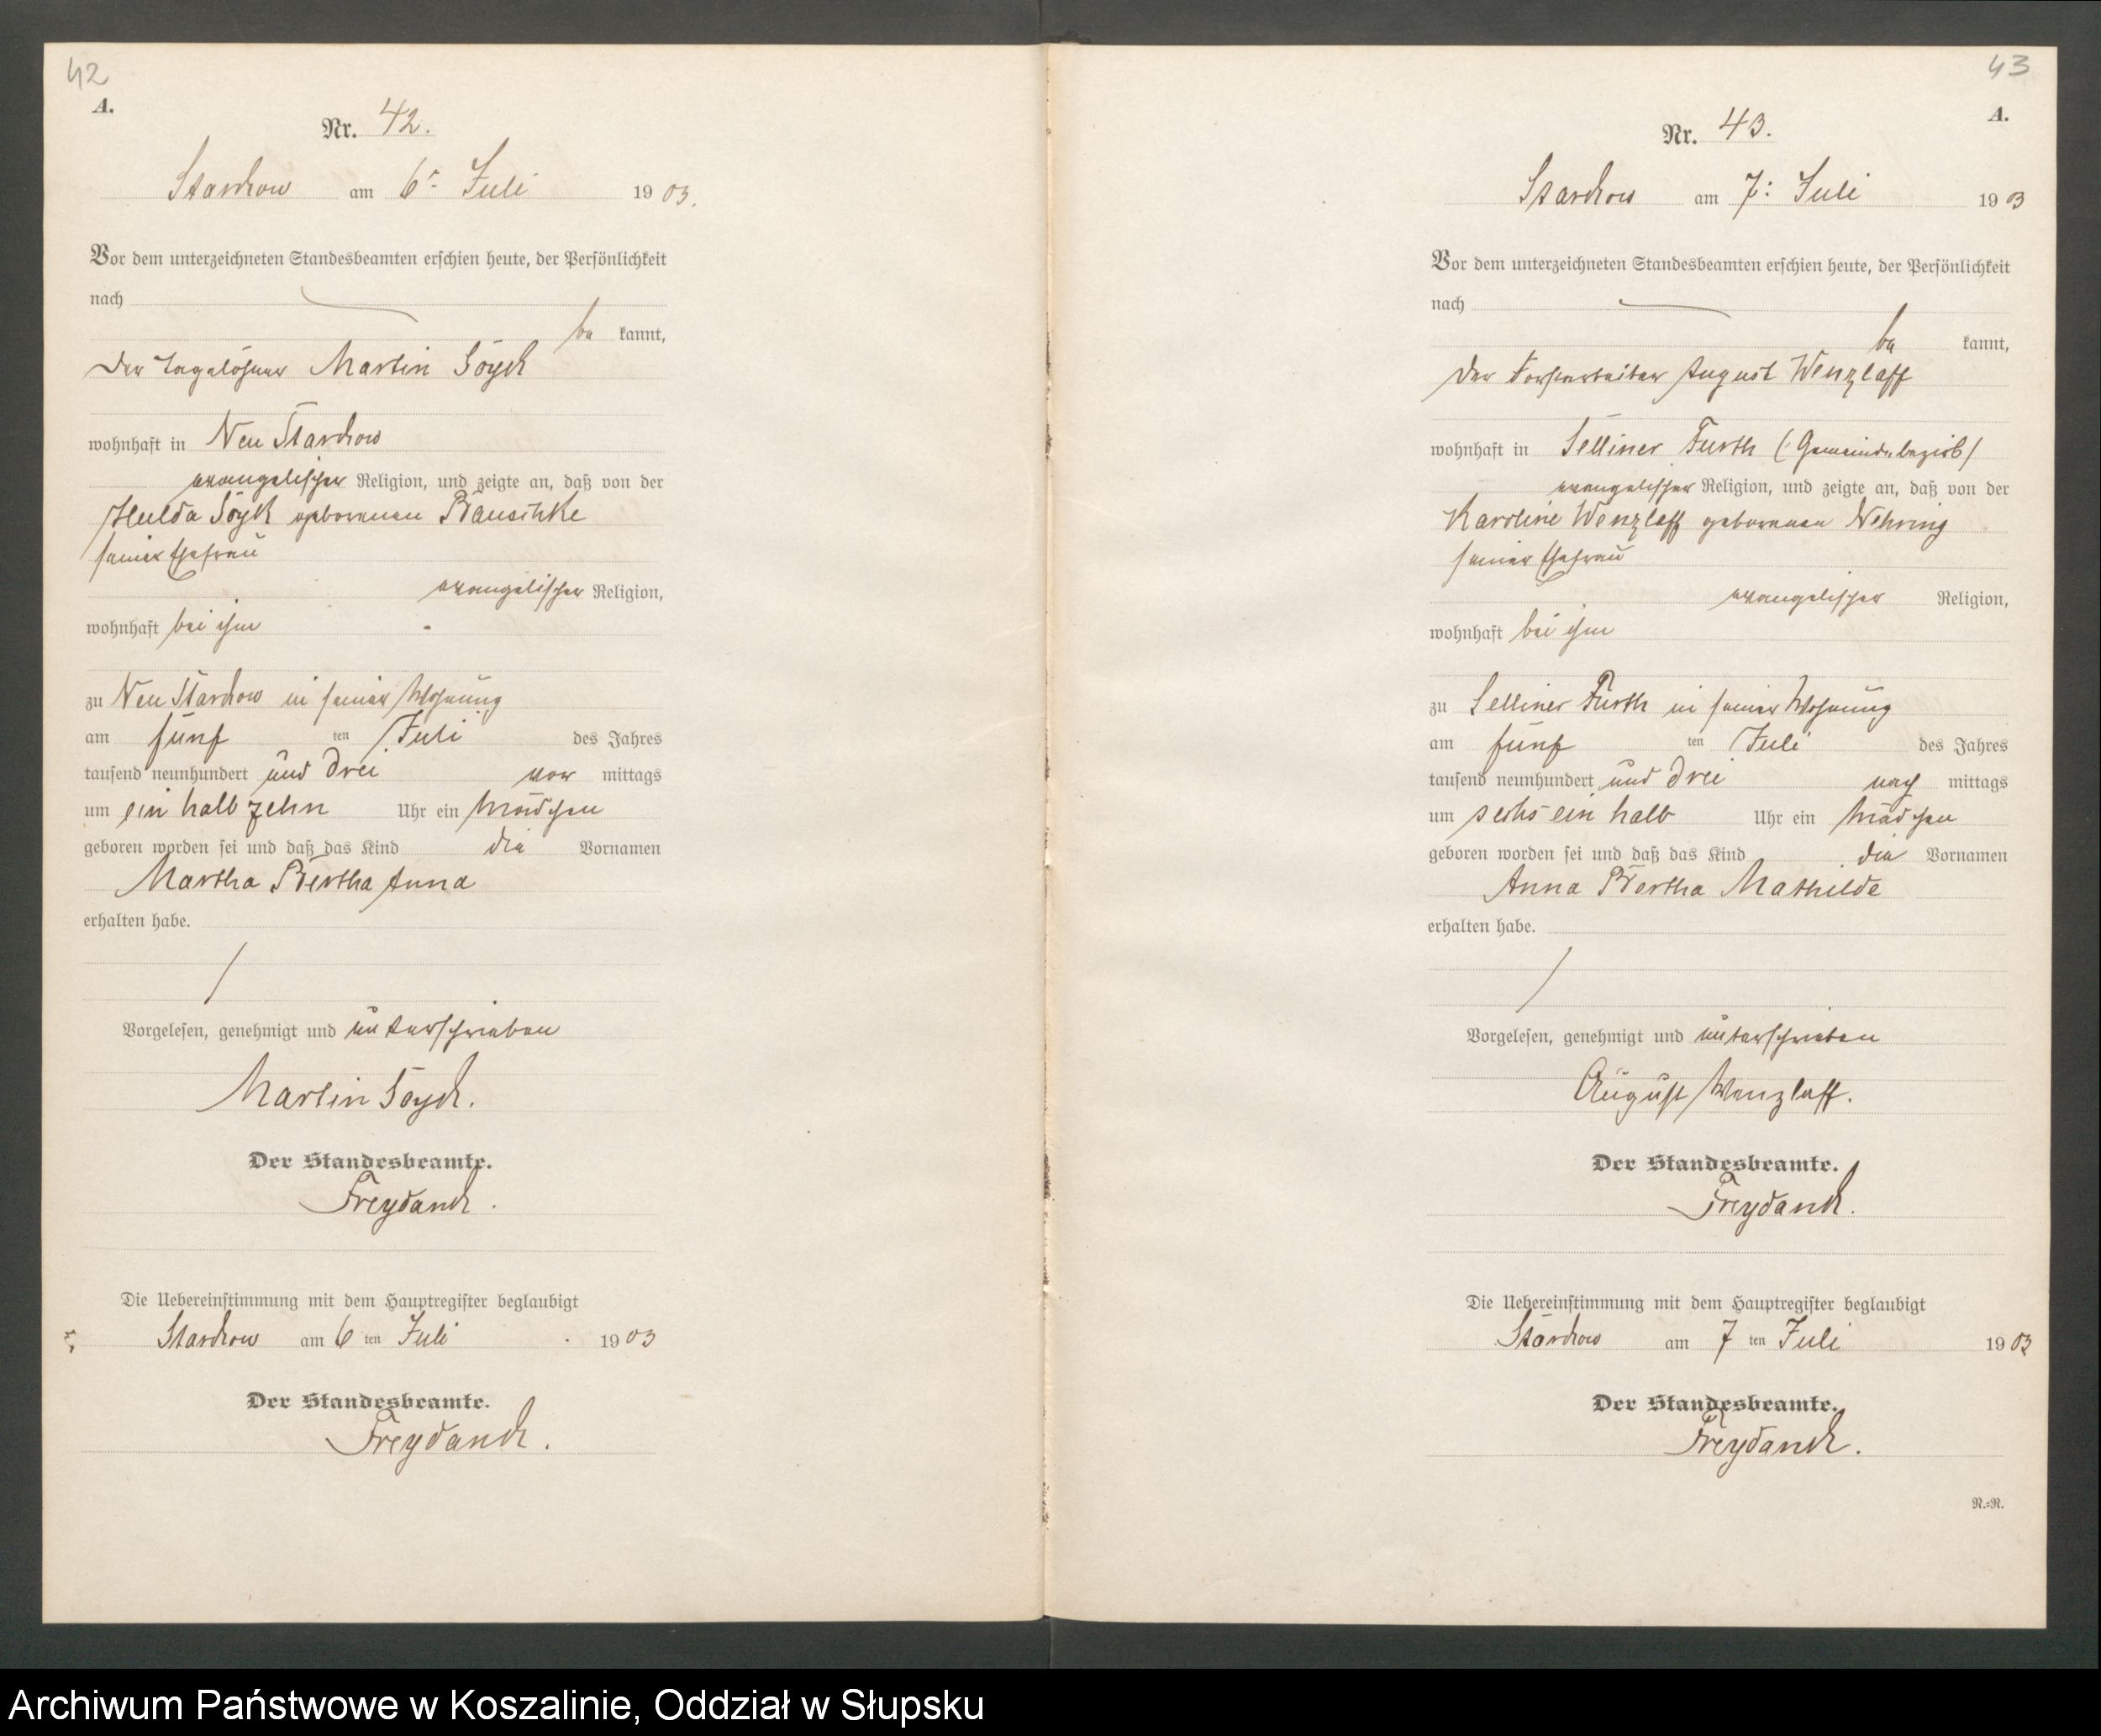 42
A.
Nr. 42.
Starckow am 6ᵗ Juli 1903.
Vor dem unterzeichneten Standesbeamten erschien heute, der Persönlichkeit
nach
be kannt,
der Tagelöhner Martin
wohnhaft in Neu Starckow
evangelischer Religion, und zeigte an, daß von der
Hulda geborenen
seiner Ehefrau
evangelischer Religion,
wohnhaft bei ihm
zu Neu Starckow in seiner Wohnung
am fünf ten Juli des Jahres
tausend neunhundert und drei vor mittags
um ein halb zehn Uhr ein Mädchen
geboren worden sei und daß das Kind die Vornamen
Martha Bertha Anna
erhalten habe.
Vorgelesen, genehmigt und unterschrieben
Martin
Der Standesbeamte.
Freydanck.
Die Uebereinstimmung mit dem Hauptregister beglaubigt
Starckow am 6 ten Juli 1903
Der Standesbeamte.
Freydanck.
43
A.
Nr. 43.
Starckow am 7: Juli 1903
Vor dem unterzeichneten Standesbeamten erschien heute, der Persönlichkeit
nach
be kannt,
der Forstarbeiter August Wenzlaff
wohnhaft in Selliner Furth (Gemeindebezirk)
evangelischer Religion, und zeigte an, daß von der
Karoline Wenzlaff geborenen Nehring
seiner Ehefrau
evangelischer Religion,
wohnhaft bei ihm
zu Selliner Furth in seiner Wohnung
am fünf ten Juli des Jahres
tausend neunhundert und drei nach mittags
um sechs ein halb Uhr ein Mädchen
geboren worden sei und daß das Kind die Vornamen
Anna Bertha Mathilde
erhalten habe.
Vorgelesen, genehmigt und unterschrieben
August Wenzlaff.
Der Standesbeamte.
Freydanck.
Die Uebereinstimmung mit dem Hauptregister beglaubigt
Starckow am 7 ten Juli 1903
Der Standesbeamte.
Freydanck.
N.=N.
Archiwum Państwowe w Koszalinie, Oddział w Słupsku